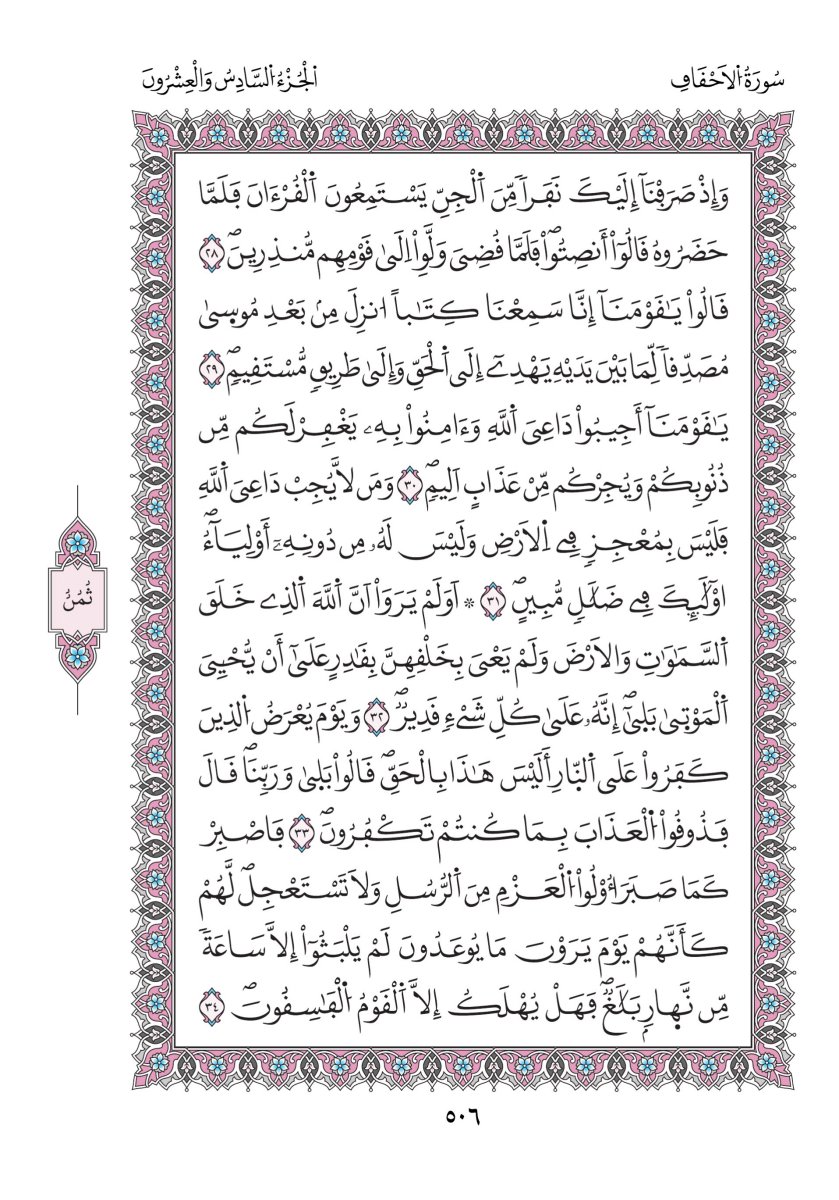 سُورَةُ اُلَاحْقَافِ
اَلْجُزْءُ اُلسَّادِسُ وَالْعِشْرُونَ
وَإِذْ صَرَفْنَآ إِلَيْكَ نَفَراٗ مِّنَ اَلْجِنِّ يَسْتَمِعُونَ اَلْقُرْءَانَ فَلَمَّا
حَضَرُوهُ قَالُوٓاْ أَنصِتُواْۖ فَلَمَّا قُضِيَ وَلَّوِاْ اِلَىٰ قَوْمِهِم مُّنذِرِينَۖ ٢٨
قَالُواْ يَٰقَوْمَنَآ إِنَّا سَمِعْنَا كِتَٰباً ا۟نزِلَ مِنۢ بَعْدِ مُوسۭيٰ
مُصَدِّقاٗ لِّمَا بَيْنَ يَدَيْهِ يَهْدِےٓ إِلَى اَلْحَقِّ وَإِلَىٰ طَرِيقٖ مُّسْتَقِيمٖۖ ٢٩
يَٰقَوْمَنَآ أَجِيبُواْ دَاعِيَ اَللَّهِ وَءَامِنُواْ بِهِۦ يَغْفِرْ لَكُم مِّن
ذُنُوبِكُمْ وَيُجِرْكُم مِّنْ عَذَابٍ اَلِيمٖۖ ٣٠ وَمَن لَّا يُجِبْ دَاعِيَ اَللَّهِ
فَلَيْسَ بِمُعْجِزٖ فِے اِلَارْضِ وَلَيْسَ لَهُۥ مِن دُونِهِۦٓ أَوْلِيَآءُۖ
ا۟وْلَٰٓئِكَ فِے ضَلَٰلٖ مُّبِينٍۖ ٣١ ۞ اَوَلَمْ يَرَوَاْ اَنَّ اَللَّهَ اَلذِے خَلَقَ
اَلسَّمَٰوَٰتِ وَالَارْضَ وَلَمْ يَعْيَ بِخَلْقِهِنَّ بِقَٰدِرٍ عَلَىٰٓ أَنْ يُّحْـِۧيَ
اَلْمَوْتۭيٰ بَلۭيٰٓۖ إِنَّهُۥ عَلَىٰ كُلِّ شَےْءٖ قَدِيرٞۖ ٣٢ وَيَوْمَ يُعْرَضُ اُلذِينَ
كَفَرُواْ عَلَى اَلنّۭارِ أَلَيْسَ هَٰذَا بِالْحَقِّۖ قَالُواْ بَلۭيٰ وَرَبِّنَاۖ قَالَ
فَذُوقُواْ اُلْعَذَابَ بِمَا كُنتُمْ تَكْفُرُونَۖ ٣٣ فَاصْبِرْ
كَمَا صَبَرَ أُوْلُواْ اُلْعَزْمِ مِنَ اَلرُّسُلِ وَلَا تَسْتَعْجِلۖ لَّهُمْ
كَأَنَّهُمْ يَوْمَ يَرَوْنَ مَا يُوعَدُونَ لَمْ يَلْبَثُوٓاْ إِلَّا سَاعَةٗ
مِّن نَّهۭارِۢ بَلَٰغٞۖ فَهَلْ يُهْلَكُ إِلَّا اَلْقَوْمُ اُلْفَٰسِقُونَۖ ٣٤
ثُمُنُ
٥٠٦